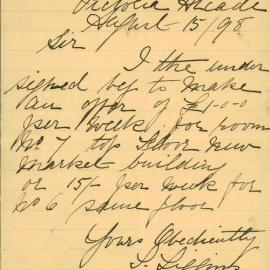 Victoria Arcade
August 15/98
Sir
I the under
signed beg to make
an offer of £1-0-0
per week for room
No 7 top floor new
market building
or 15/- per week for
No 6 same floor
Yours Obediently